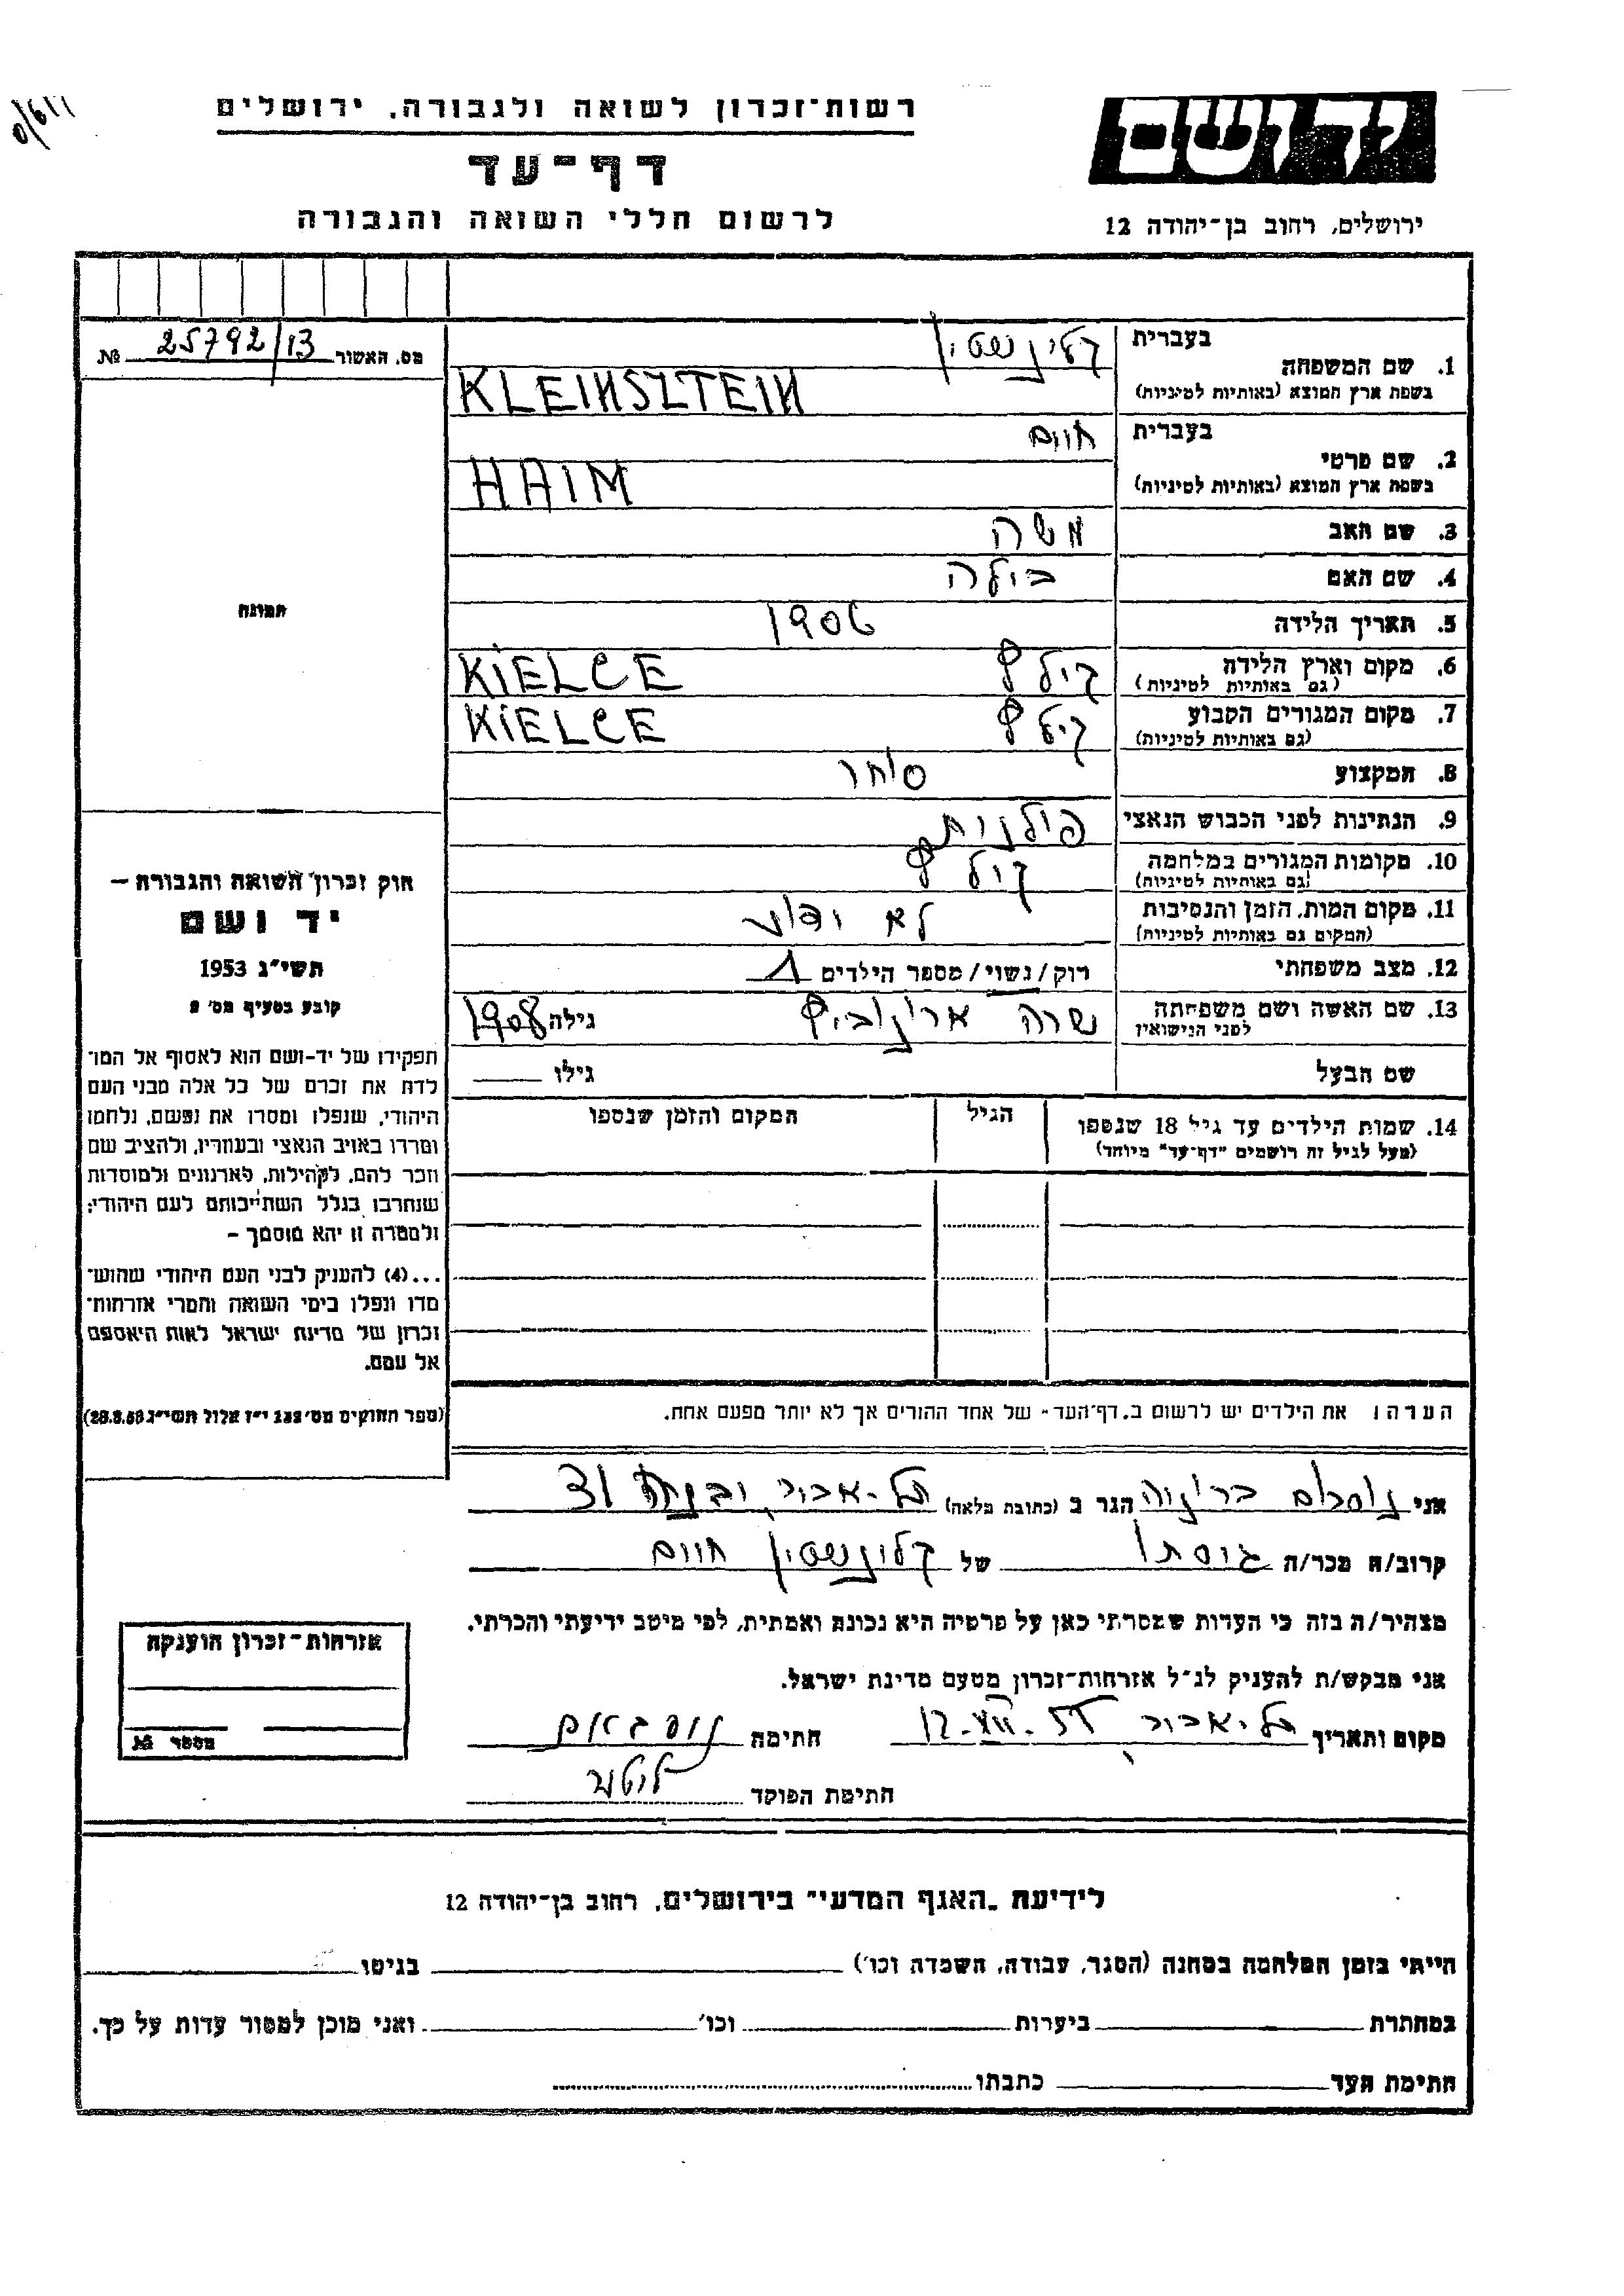 רשות־זכרון לשואה ולגבורה, ירושלים
דף־עד
לרשום חללי השואה והגבורה
יד ושם
ירושלים, רחוב בן־יהודה 12
מס. האשור 25792/13 №
תמונה
בעברית קליינשטיין
1. שם המשפחה
בשפת ארץ המוצא (באותיות לטיניות) KLEINSZTEIN
בעברית חיים
2. שם פרטי
בשפת ארץ המוצא (באותיות לטיניות) HAIM
3. שם האב משה
4. שם האם בילה
5. תאריך הלידה 1906
6. מקום וארץ הלידה קילץ KIELCE
(גם באותיות לטיניות)
7. מקום המגורים הקבוע קילץ KIELCE
(גם באותיות לטיניות)
8. המקצוע סוחר
9. הנתינות לפני הכבוש הנאצי פולנית
10. מקומות המגורים במלחמה קילץ
(גם באותיות לטיניות)
11. מקום המות, הזמן והנסיבות לא ידוע
(המקום גם באותיות לטיניות)
12. מצב משפחתי רוק/נשוי/מספר הילדים 1
13. שם האשה ושם משפחתה שרה גילה 1908
לפני הנישואין
שם הבעל גילו
14. שמות הילדים עד גיל 18 שנספו הגיל המקום והזמן שנספו
(מעל לגיל זה רושמים "דף־עד" מיוחד)
הערה: את הילדים יש לרשום ב„דף־העד" של אחד ההורים אך לא יותר מפעם אחת.
חוק זכרון השואה והגבורה –
יד ושם
תשי"ג 1953
קובע בסעיף מס' 2
תפקידו של יד-ושם הוא לאסוף אל המו־
לדת את זכרם של כל אלה מבני העם
היהודי, שנפלו ומסרו את נפשם, נלחמו
ומרדו באויב הנאצי ובעוזריו, ולהציב שם
וזכר להם, לקהילות, לארגונים ולמוסדות
שנחרבו בגלל השתייכותם לעם היהודי;
ולמטרה זו יהא מוסמך –
...(4) להעניק לבני העם היהודי שהוש־
מדו ונפלו בימי השואה והמרי אזרחות־
זכרון של מדינת ישראל לאות היאספם
אל עמם.
(ספר החוקים מס' 132 י"ז אלול תשי"ג 28.8.53)
אני הגר ב (כתובת מלאה) תל-אביב, 31
קרוב/ה מכר/ה גיסתו של קליינשטיין חיים
מצהיר/ה בזה כי העדות שמסרתי כאן על פרטיה היא נכונה ואמתית, לפי מיטב ידיעתי והכרתי.
אני מבקש/ת להעניק לנ"ל אזרחות־זכרון מטעם מדינת ישראל.
מקום ותאריך תל-אביב, 12. חתימה
חתימת הפוקד
אזרחות־זכרון הוענקה
מספר №
לידיעת „האגף המדעי" בירושלים, רחוב בן־יהודה 12
הייתי בזמן המלחמה במחנה (הסגר, עבודה, השמדה וכו') בגיטו
במחתרת ביערות וכו' ואני מוכן למסור עדות על כך.
חתימת העד כתבתו